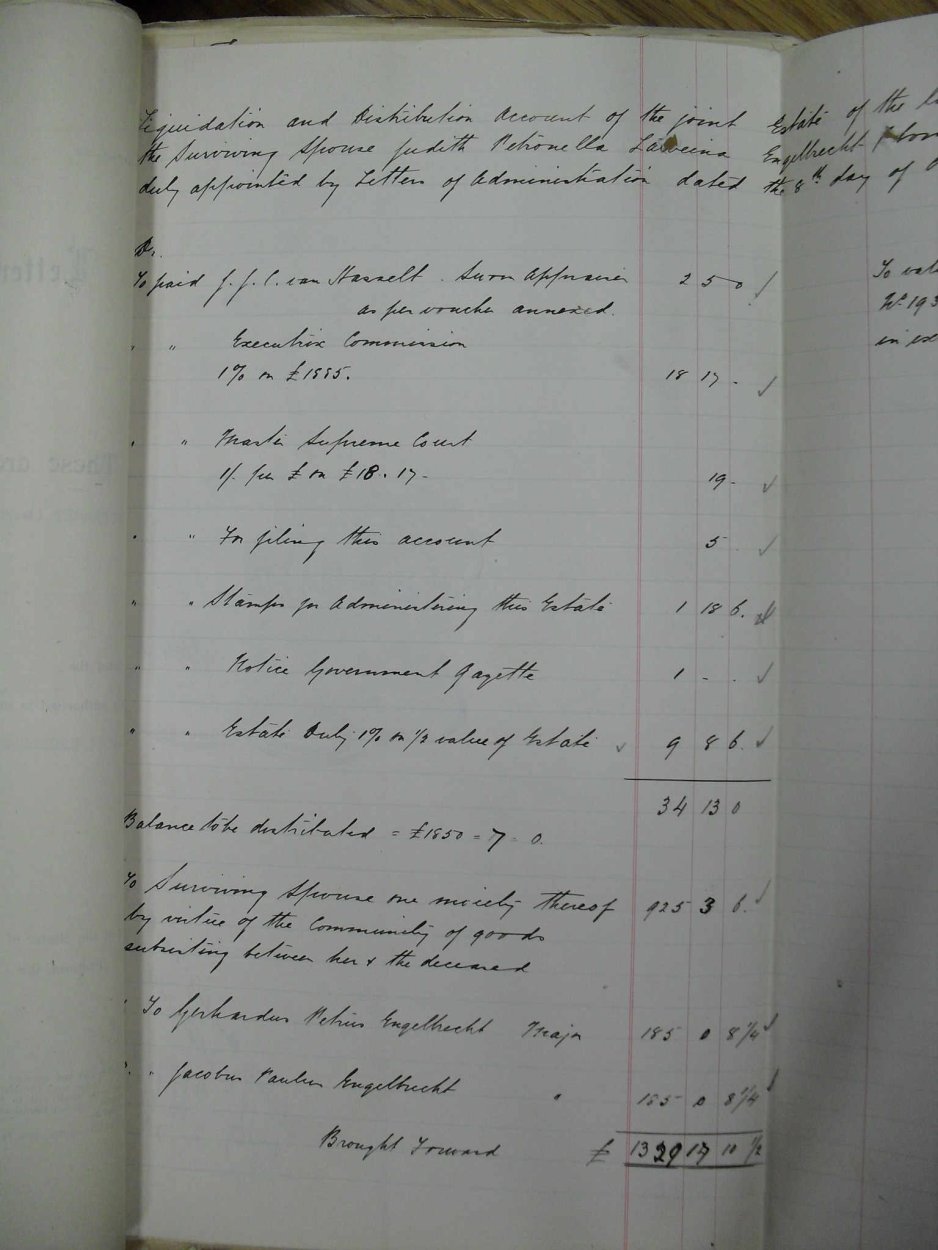 Liquidation and Distribution Account of the joint Estate of the
the Surviving Spouse Judith Petronella Engelbrecht
duly appointed by Letters of Administration dated the 8th day of
Dr.
To paid J. J. C. van Hasselt . Sworn Appraiser 2 5 0
as per voucher annexed.
" " Executrix Commission
1% on £1885. 18 17 -
" " Master Supreme Court
1/. per £ on £18. 17 - 19 -
" " For filing this account 5
" " Stamps for Administering this Estate 1 18 6.
" " Notice Government Gazette 1 - -
" " Estate Duty 1% on 1/2 value of Estate 9 8 6.
34 13 0
Balance to be distributed = £1850 = 7 = 0.
To Surviving Spouse one moiety thereof 925 3 6.
by virtue of the Community of goods
subsisting between her & the deceased
" To Gerhardus Petrus Engelbrecht Major 185 0 8 1/4
" " Jacobus Paulus Engelbrecht " 185 0 8 1/4
Brought Forward £ 1329 17 10 1/2
To
No 193
in